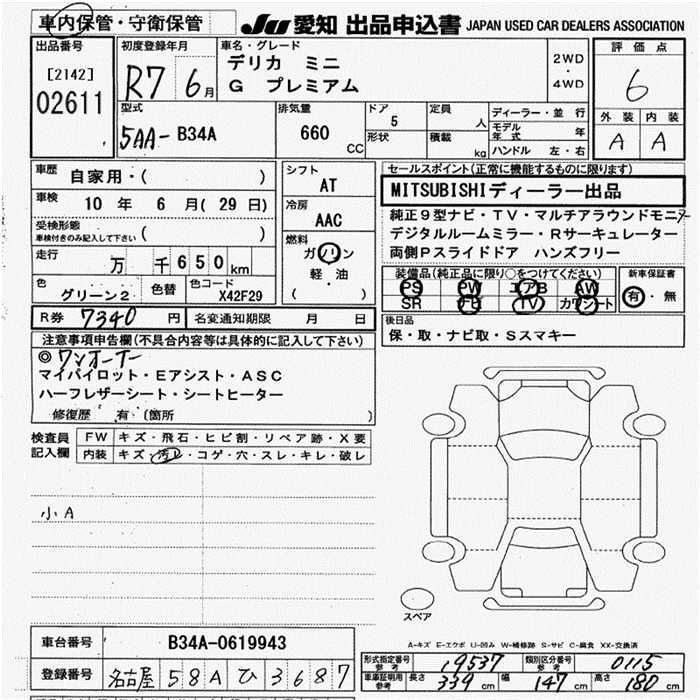 車内保管・守衛保管 JU 愛知 出品申込書 JAPAN USED CAR DEALERS ASSOCIATION
出品番号
[2142]
02611
初度登録年月
R7 6月
車名・グレード
デリカ ミニ
G プレミアム
2WD
・
4WD
評価点
6
外装 内装
A A
型式
5AA-B34A
排気量
660 cc
ドア 5
形状
定員 人
積載 kg
ディーラー・並行
モデル年式 年
ハンドル 左・右
車歴
自家用・( )
車検
10 年 6 月( 29 日)
受検形態
車検付きのみ記入して下さい ( )
走行
万 千 650 km
色
グリーン2
色替
色コード
X42F29
シフト
AT
冷房
AAC
燃料
ガソリン
軽・油
( )
セールスポイント(正常に機能するものに限ります)
MITSUBISHIディーラー出品
純正9型ナビ・TV・マルチアラウンドモニター
デジタルルームミラー・Rサーキュレーター
両側Pスライドドア ハンズフリー
装備品(純正品に限り○をつけてください)
PS PW エアB AW
SR TV カワシート
新車保証書
有・無
R券 7340 円 名変通知期限 月 日
後日品
保・取・ナビ取・Sスマキー
注意事項申告欄(不具合内容等は具体的に記入して下さい)
◎ワンオーナー
マイパイロット・Eアシスト・ASC
ハーフレザーシート・シートヒーター
修復歴 有・(箇所 )
検査員
記入欄
FW キズ・飛石・ヒビ割・リペア跡・X要
内装 キズ・汚レ・コゲ・穴・スレ・キレ・破レ
小A
スペア
A-キズ E-エクボ U-凹み W-補修跡 S-サビ C-腐食 XX-交換済
車台番号
B34A-0619943
登録番号
名古屋 58A ひ 3687
形式指定番号
参考
19537
類別区分番号
参考
0115
車庫証明用
参考
長さ 339 cm 幅 147 cm 高さ 180 cm